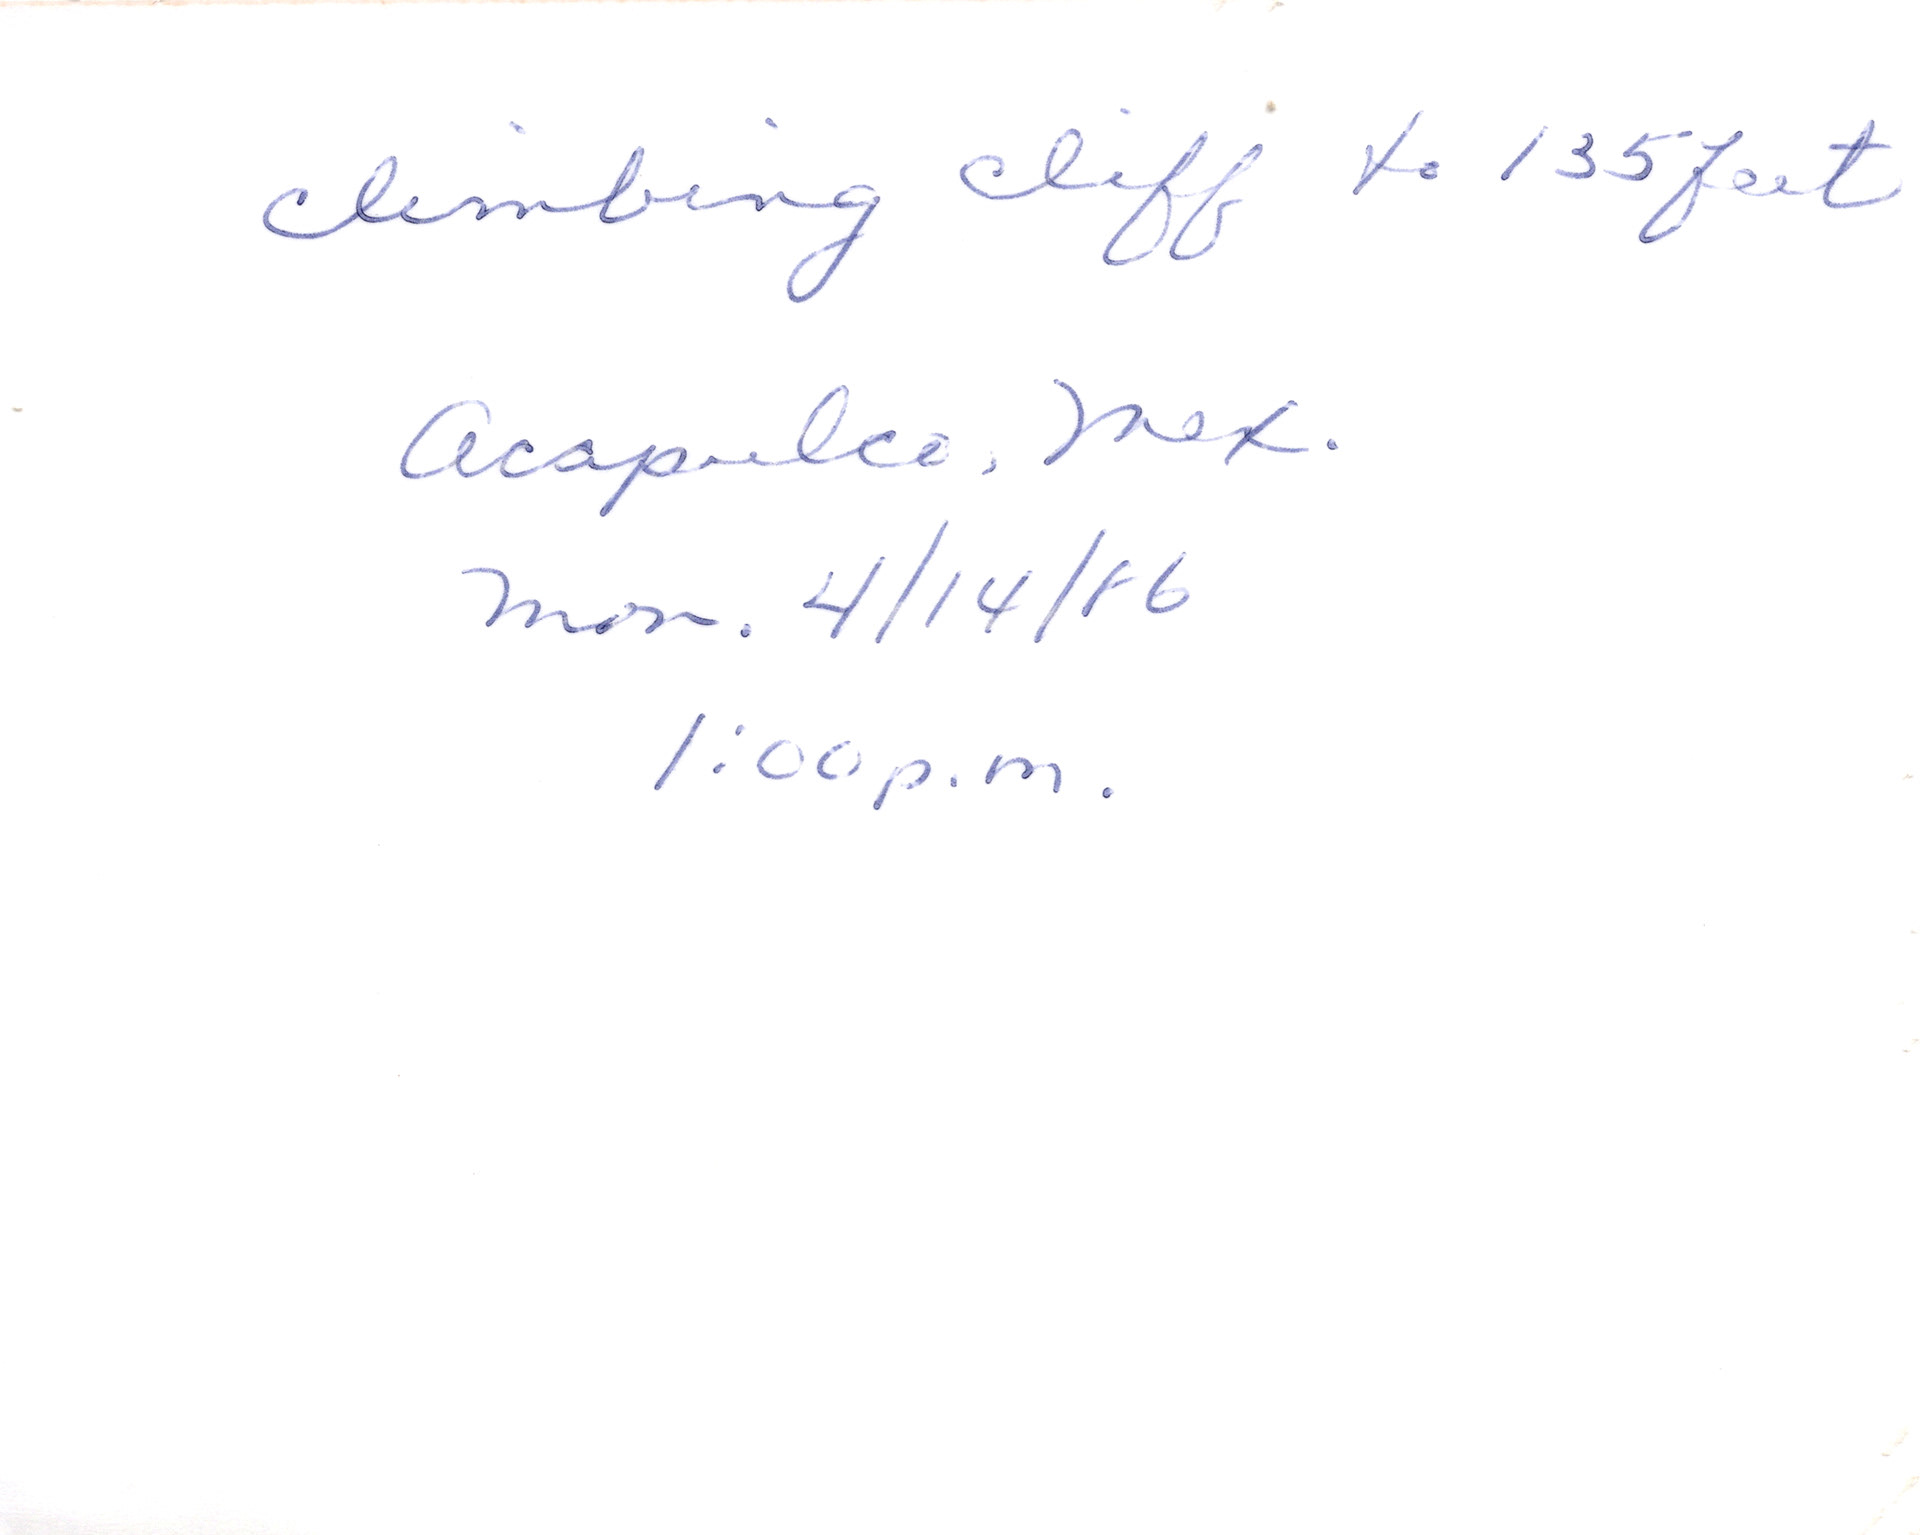 climbing cliff to 135 feet
Acapulco, Mex.
Mon. 4/14/86
1:00 p.m.